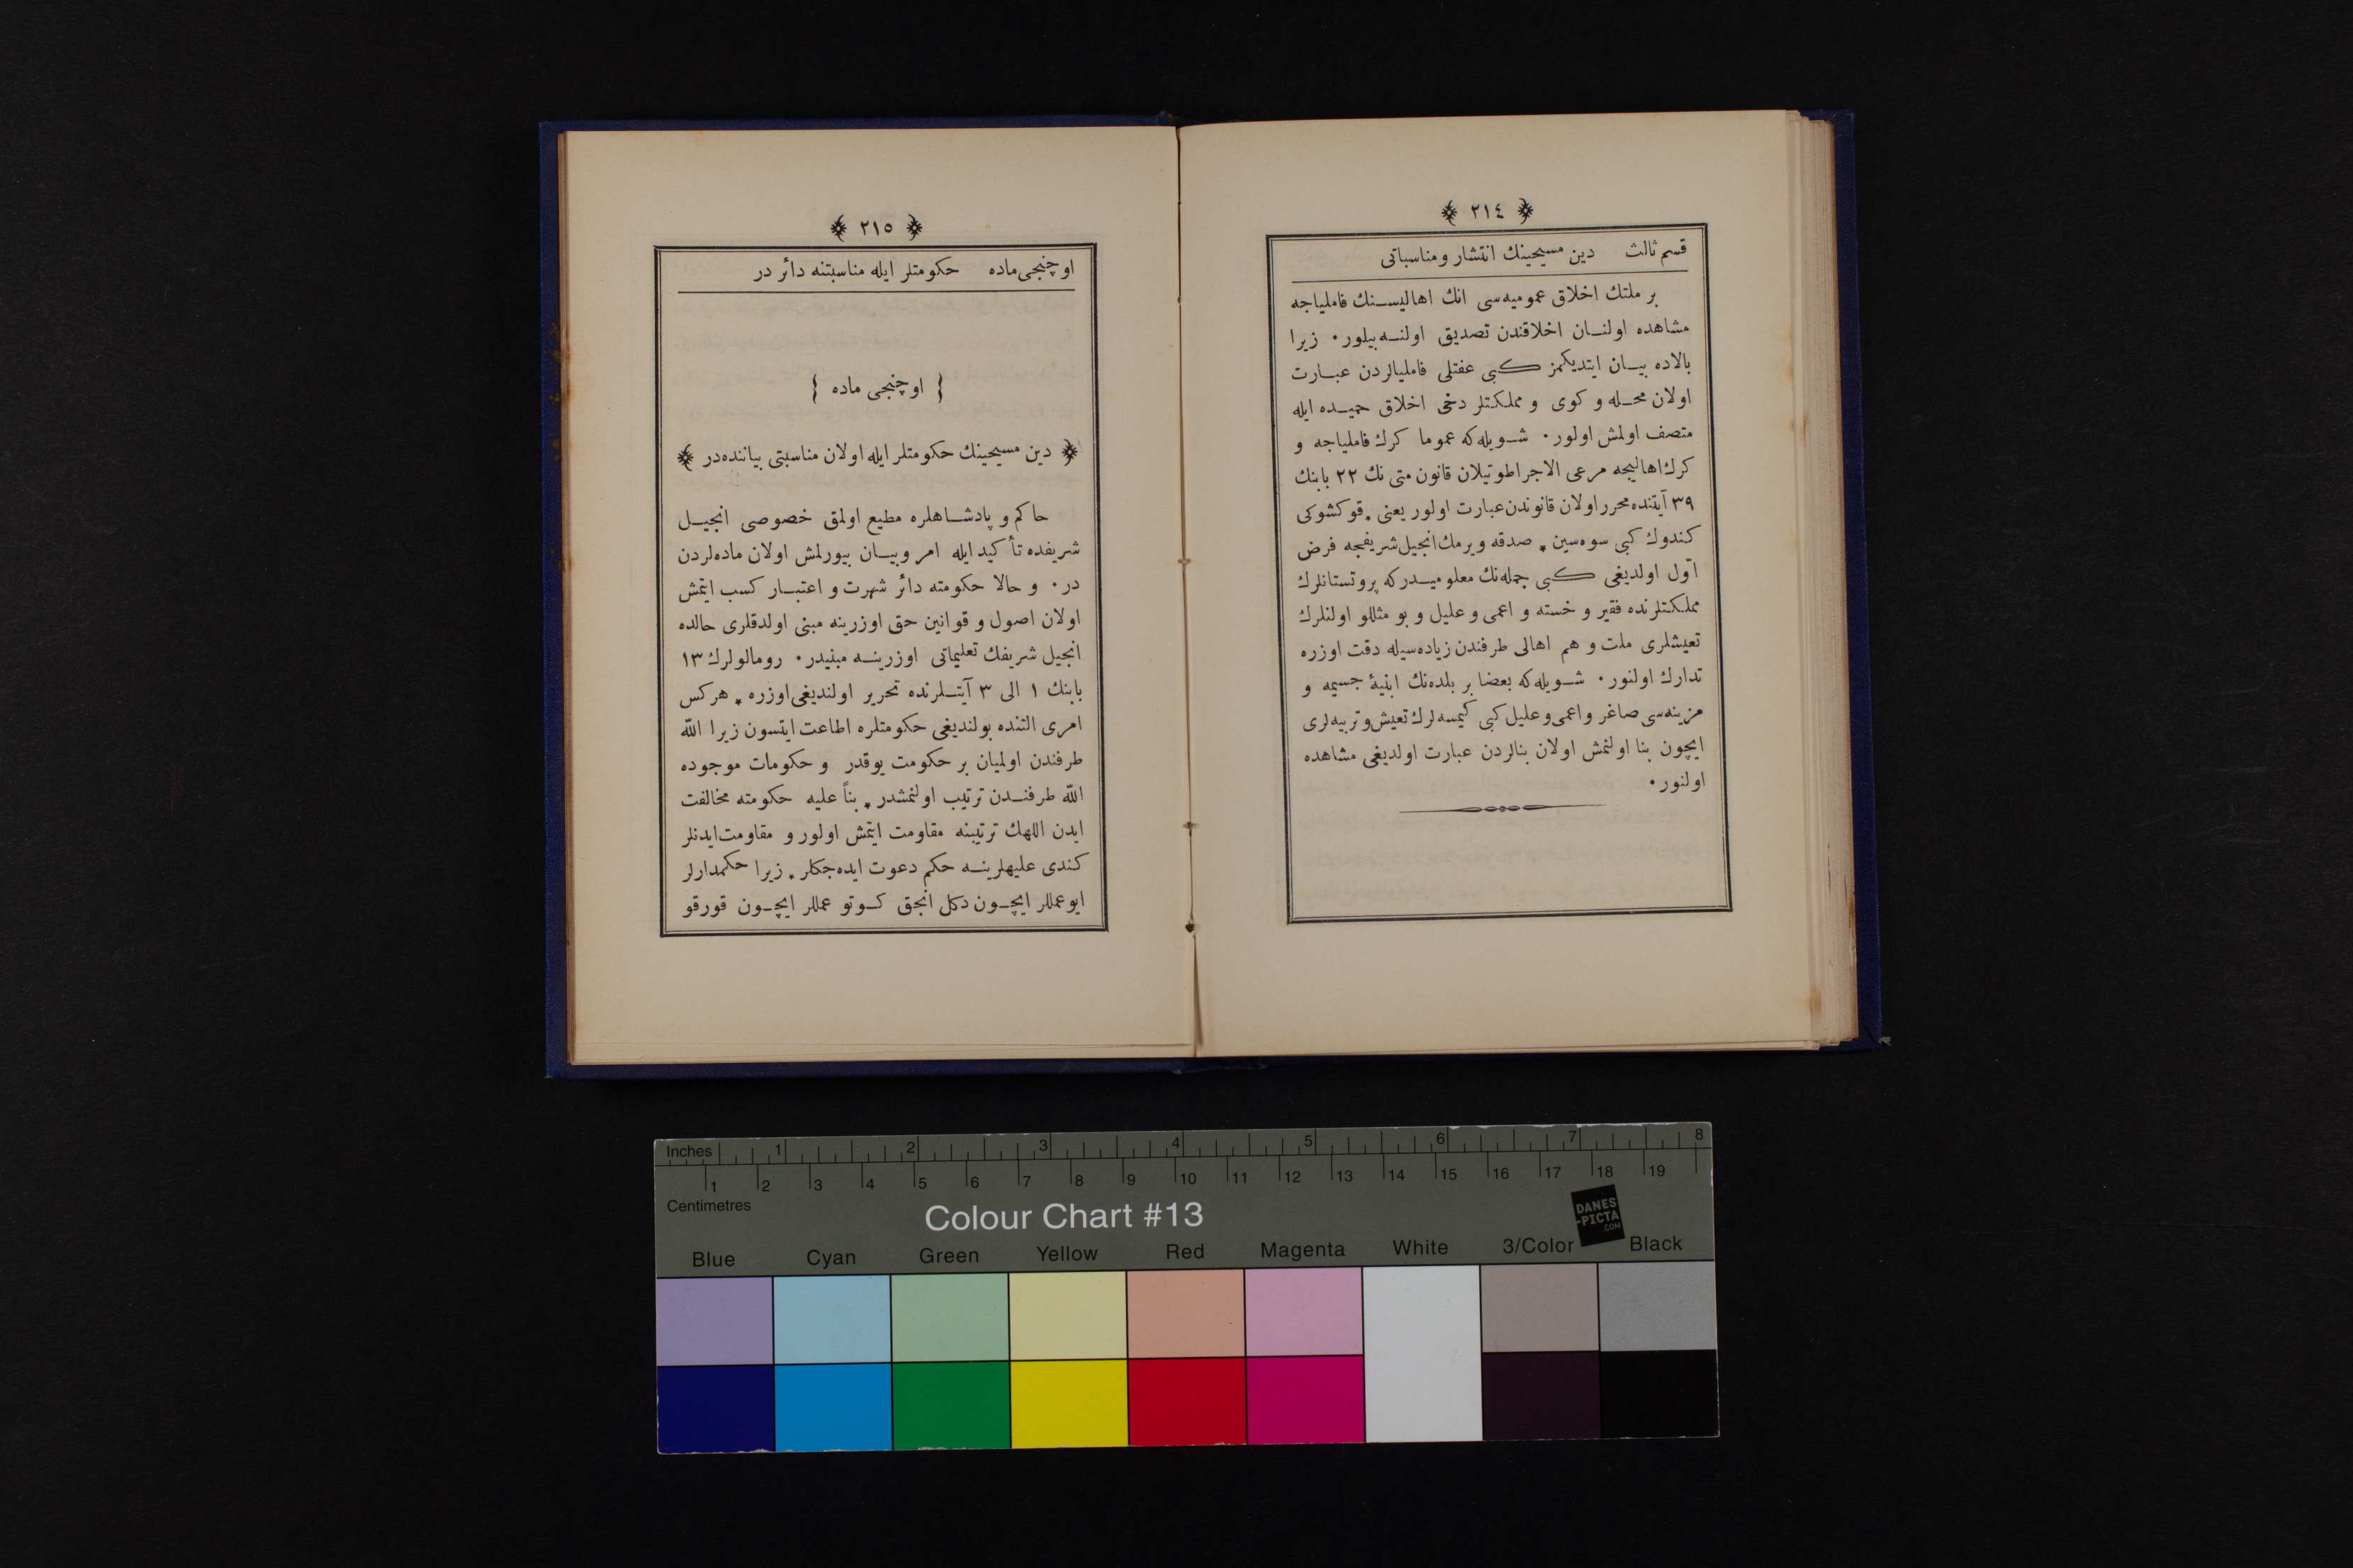 ﴿ ٢١٤ ﴾
قسم ثالث دين مسيحينك انتشار ومناسباتى
بر ملتك اخلاق عموميه‌سى انك اهاليسـنك فاملياجه
مشاهده اولنـان اخلاقندن تصديق اولنـه‌بيلور٠ زيرا
بالاده بيـان ايتديكمز كبى عفتلى فامليالردن عبـارت
اولان محـله و كوى و مملكتلر دخى اخلاق حميـده ايله
متصف اولمش اولور٠ شـويله‌كه عموما كرك فاملياجه و
كرك اهاليجه مرعى الاجرا طوتيلان قانون متى نك ٢٢ بابنك
٣٩ آيتنده محرر اولان قانوندن عبارت اولور يعنى ٭ قوكشوكى
كندوك كبى سوه‌سين ٭ صدقه ويرمك انجيل شريفجه فرض
اوّل اولديغى كبى جمله‌نك معلوميـدركه پروتستانلرك
مملكتلرنده فقير و خسته و اعمى و عليل و بو مثللو اولنلرك
تعيشلرى ملت و هم اهالى طرفندن زياده‌سيله دقت اوزره
تدارك اولنور٠ شـويله‌كه بعضا بر بلده‌نك ابنيۀ جسيمه و
مزينه‌سى صاغر و اعمى و عليل كبى كيمسه‌لرك تعيش و تربيه‌لرى
ايچون بنا اولنمش اولان بنالردن عبارت اولديغى مشاهده
اولنور٠
﴿ ٢١٥ ﴾
اوچنجى ماده حكومتلر ايله مناسبتنه دائر در
{ اوچنجى ماده }
﴿ دين مسيحينك حكومتلر ايله اولان مناسبتى بياننده‌در ﴾
حاكم و پادشـاهلره مطيع اولمق خصوصى انجيـل
شريفده تأكيد ايله امر وبيـان بيورلمش اولان ماده‌لردن
در٠ و حالا حكومته دائر شهرت و اعتبـار كسب ايتمش
اولان اصول و قوانين حق اوزرينه مبنى اولدقلرى حالده
انجيل شريفك تعليماتى اوزرينـه مبنيدر٠ رومالولرك ١٣
بابنك ١ الى ٣ آيتـلرنده تحرير اولنديغى اوزره ٭ هركس
امرى التنده بولنديغى حكومتلره اطاعت ايتسون زيرا الله
طرفندن اولميان بر حكومت يوقدر و حكومات موجوده
الله طرفنـدن ترتيب اولنمشدر ٭ بناً عليه حكومته مخالفت
ايدن اللهك ترتيبنه مقاومت ايتمش اولور و مقاومت ايدنلر
كندى عليهلرينـه حكم دعوت ايده‌جكلر ٭ زيرا حكمدارلر
ايو عمللر ايچـون دكل انجق كـوتو عمللر ايچـون قورقو
Inches 1 2 3 4 5 6 7 8
1 2 3 4 5 6 7 8 9 10 11 12 13 14 15 16 17 18 19
Centimetres
Colour Chart #13
DANES
-PICTA
.COM
Blue Cyan Green Yellow Red Magenta White 3/Color Black